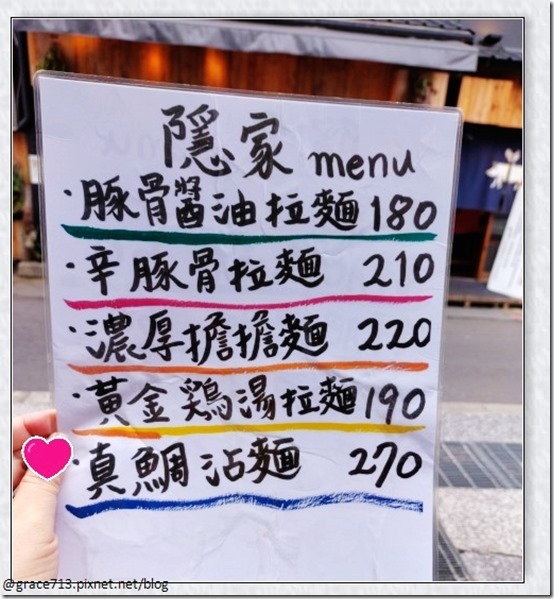 隱家 menu
·豚骨醬油拉麵 180
·辛豚骨拉麵 210
·濃厚擔擔麵 220
·黃金鶏湯拉麵 190
·真鯛沾麵 270
@grace713.pixnet.net/blog